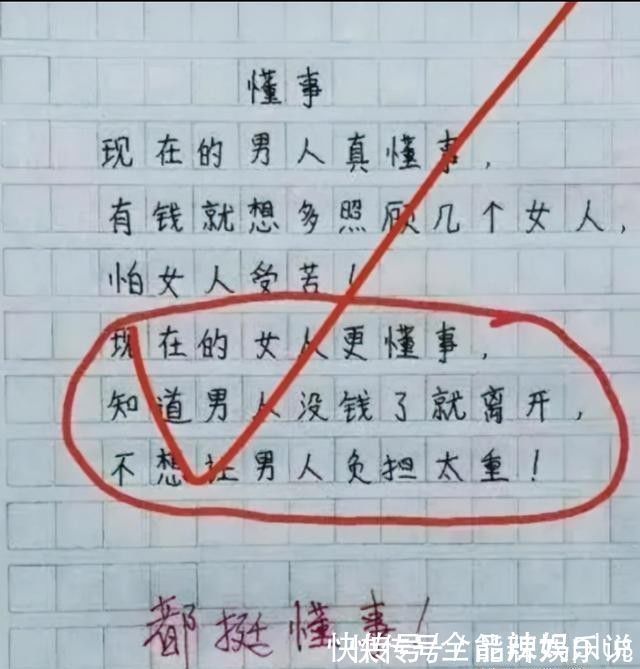 懂事
现在的男人真懂事，
有钱就想多照顾几个女人，
怕女人受苦！
现在的女人更懂事，
知道男人没钱了就离开，
不想让男人负担太重！
都挺懂事！
快传号